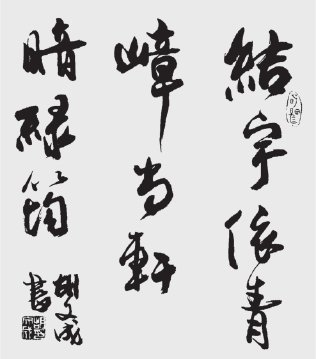 結宇依青
嶂當軒
暗綠筠
胡文成
書